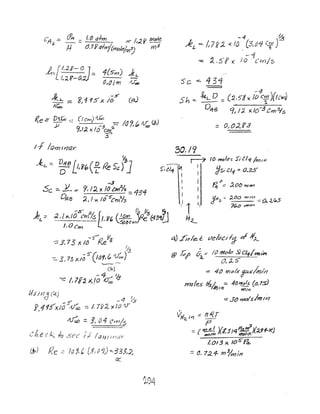 C*A₂ = p_A/H = 1.0 atm / 0.78 atm/(mole/m³) = 1.28 mole/m³
ln[(1.28-0)/(1.28-0.2)] = 4(5m)/0.01m · k_L/v∞
k_L/v∞ = 8.495 x 10⁻⁵ (a)
Re = Dv∞/ν = (1cm) v∞ / 9.12 x 10⁻³ cm²/s = 109.6 v∞ (b)
if laminar
k_L = D_AB/D [1.86 (D/L Re Sc)^1/3]
Sc = ν/D_AB = 9.12 x 10⁻³ cm²/s / 2.1 x 10⁻⁵ cm²/s = 434
k_L = 2.1 x 10⁻⁵ cm²/s / 1.0 cm [1.86 (1cm/500cm)^1/3 Re^1/3 (434)^1/3]
= 3.73 x 10⁻⁵ Re^1/3
= 3.73 x 10⁻⁵ (109.6 v∞)^1/3
(b)
= 1.782 x 10⁻⁴ v∞^1/3
Using (a)
8.495 x 10⁻⁵ v∞ = 1.782 x 10⁻⁴ v∞^1/3
v∞ = 3.04 cm/s
check to see if laminar
(b) Re = 109.6 (3.04) = 333.2
k_L = 1.782 x 10⁻⁴ (3.04 cm/s)^1/3
= 2.58 x 10⁻⁴ cm/s
Sc = 434
Sh = k_L D/D_AB = (2.58 x 10⁻⁴ cm/s)(1cm) / 9.12 x 10⁻³ cm²/s
= 0.0283
30.19
10 moles SiCl₄/min
SiCl₄
y SiCl₄ = 0.25
200 mm
= 200 mm / 760 mm = 0.263
H₂
a) Inlet velocity of H₂
@ Top G₂ = 10 mole SiCl₄/min / 0.25
= 40 mole gas/min
moles H₂/min = 40 mole/min (0.75)
= 30 moles/min
V̇H₂ in = nRT/P
1.013 x 10⁵ Pa
= 0.724 m³/min
204